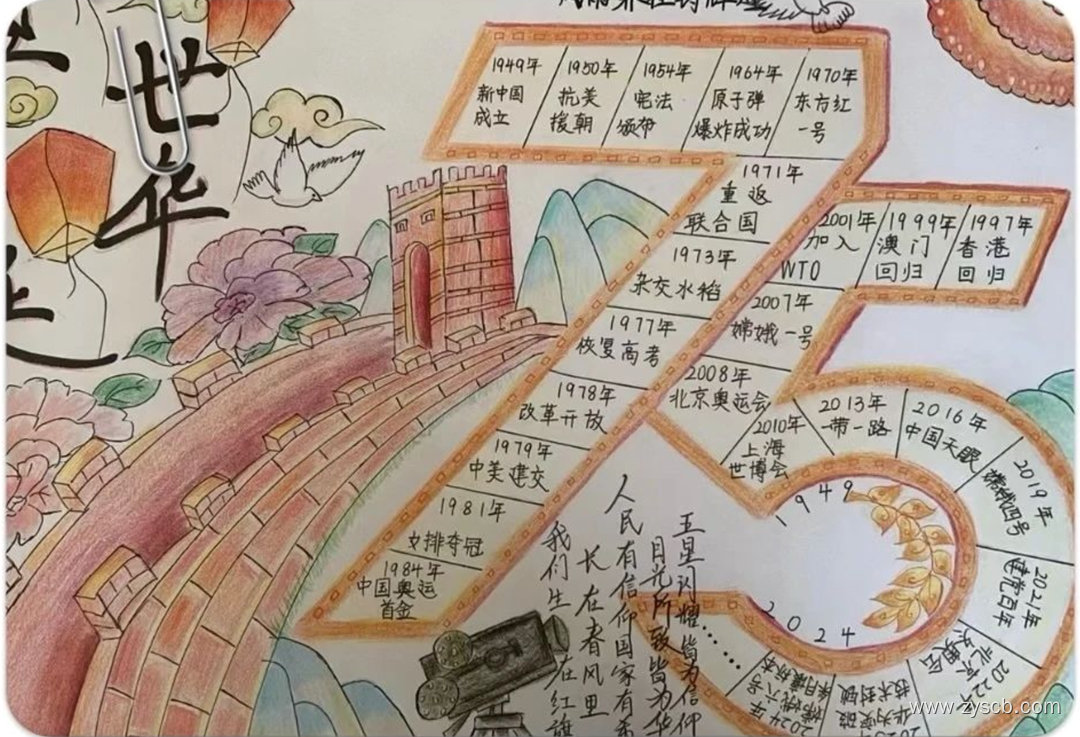 世
华
1949年
新中国
成立
1950年
抗美
援朝
1954年
宪法
颁布
1964年
原子弹
爆炸成功
1970年
东方红
一号
1971年
重返
联合国
1973年
杂交水稻
1977年
恢复高考
1978年
改革开放
1979年
中美建交
1981年
女排夺冠
1984年
中国奥运
首金
1997年
香港
回归
1999年
澳门
回归
2001年
加入
WTO
2007年
嫦娥一号
2008年
北京奥运会
2010年
上海
世博会
2013年
一带一路
2016年
中国天眼
2019年
嫦娥四号
2021年
建党百年
2022年
北京
冬奥会
华为突破
技术封锁
2024年
嫦娥六号
1949
2024
五星闪耀皆为信仰
目光所致皆为华
人民有信仰国家有
长在春风里
我们生在红旗
www.zyscb.com